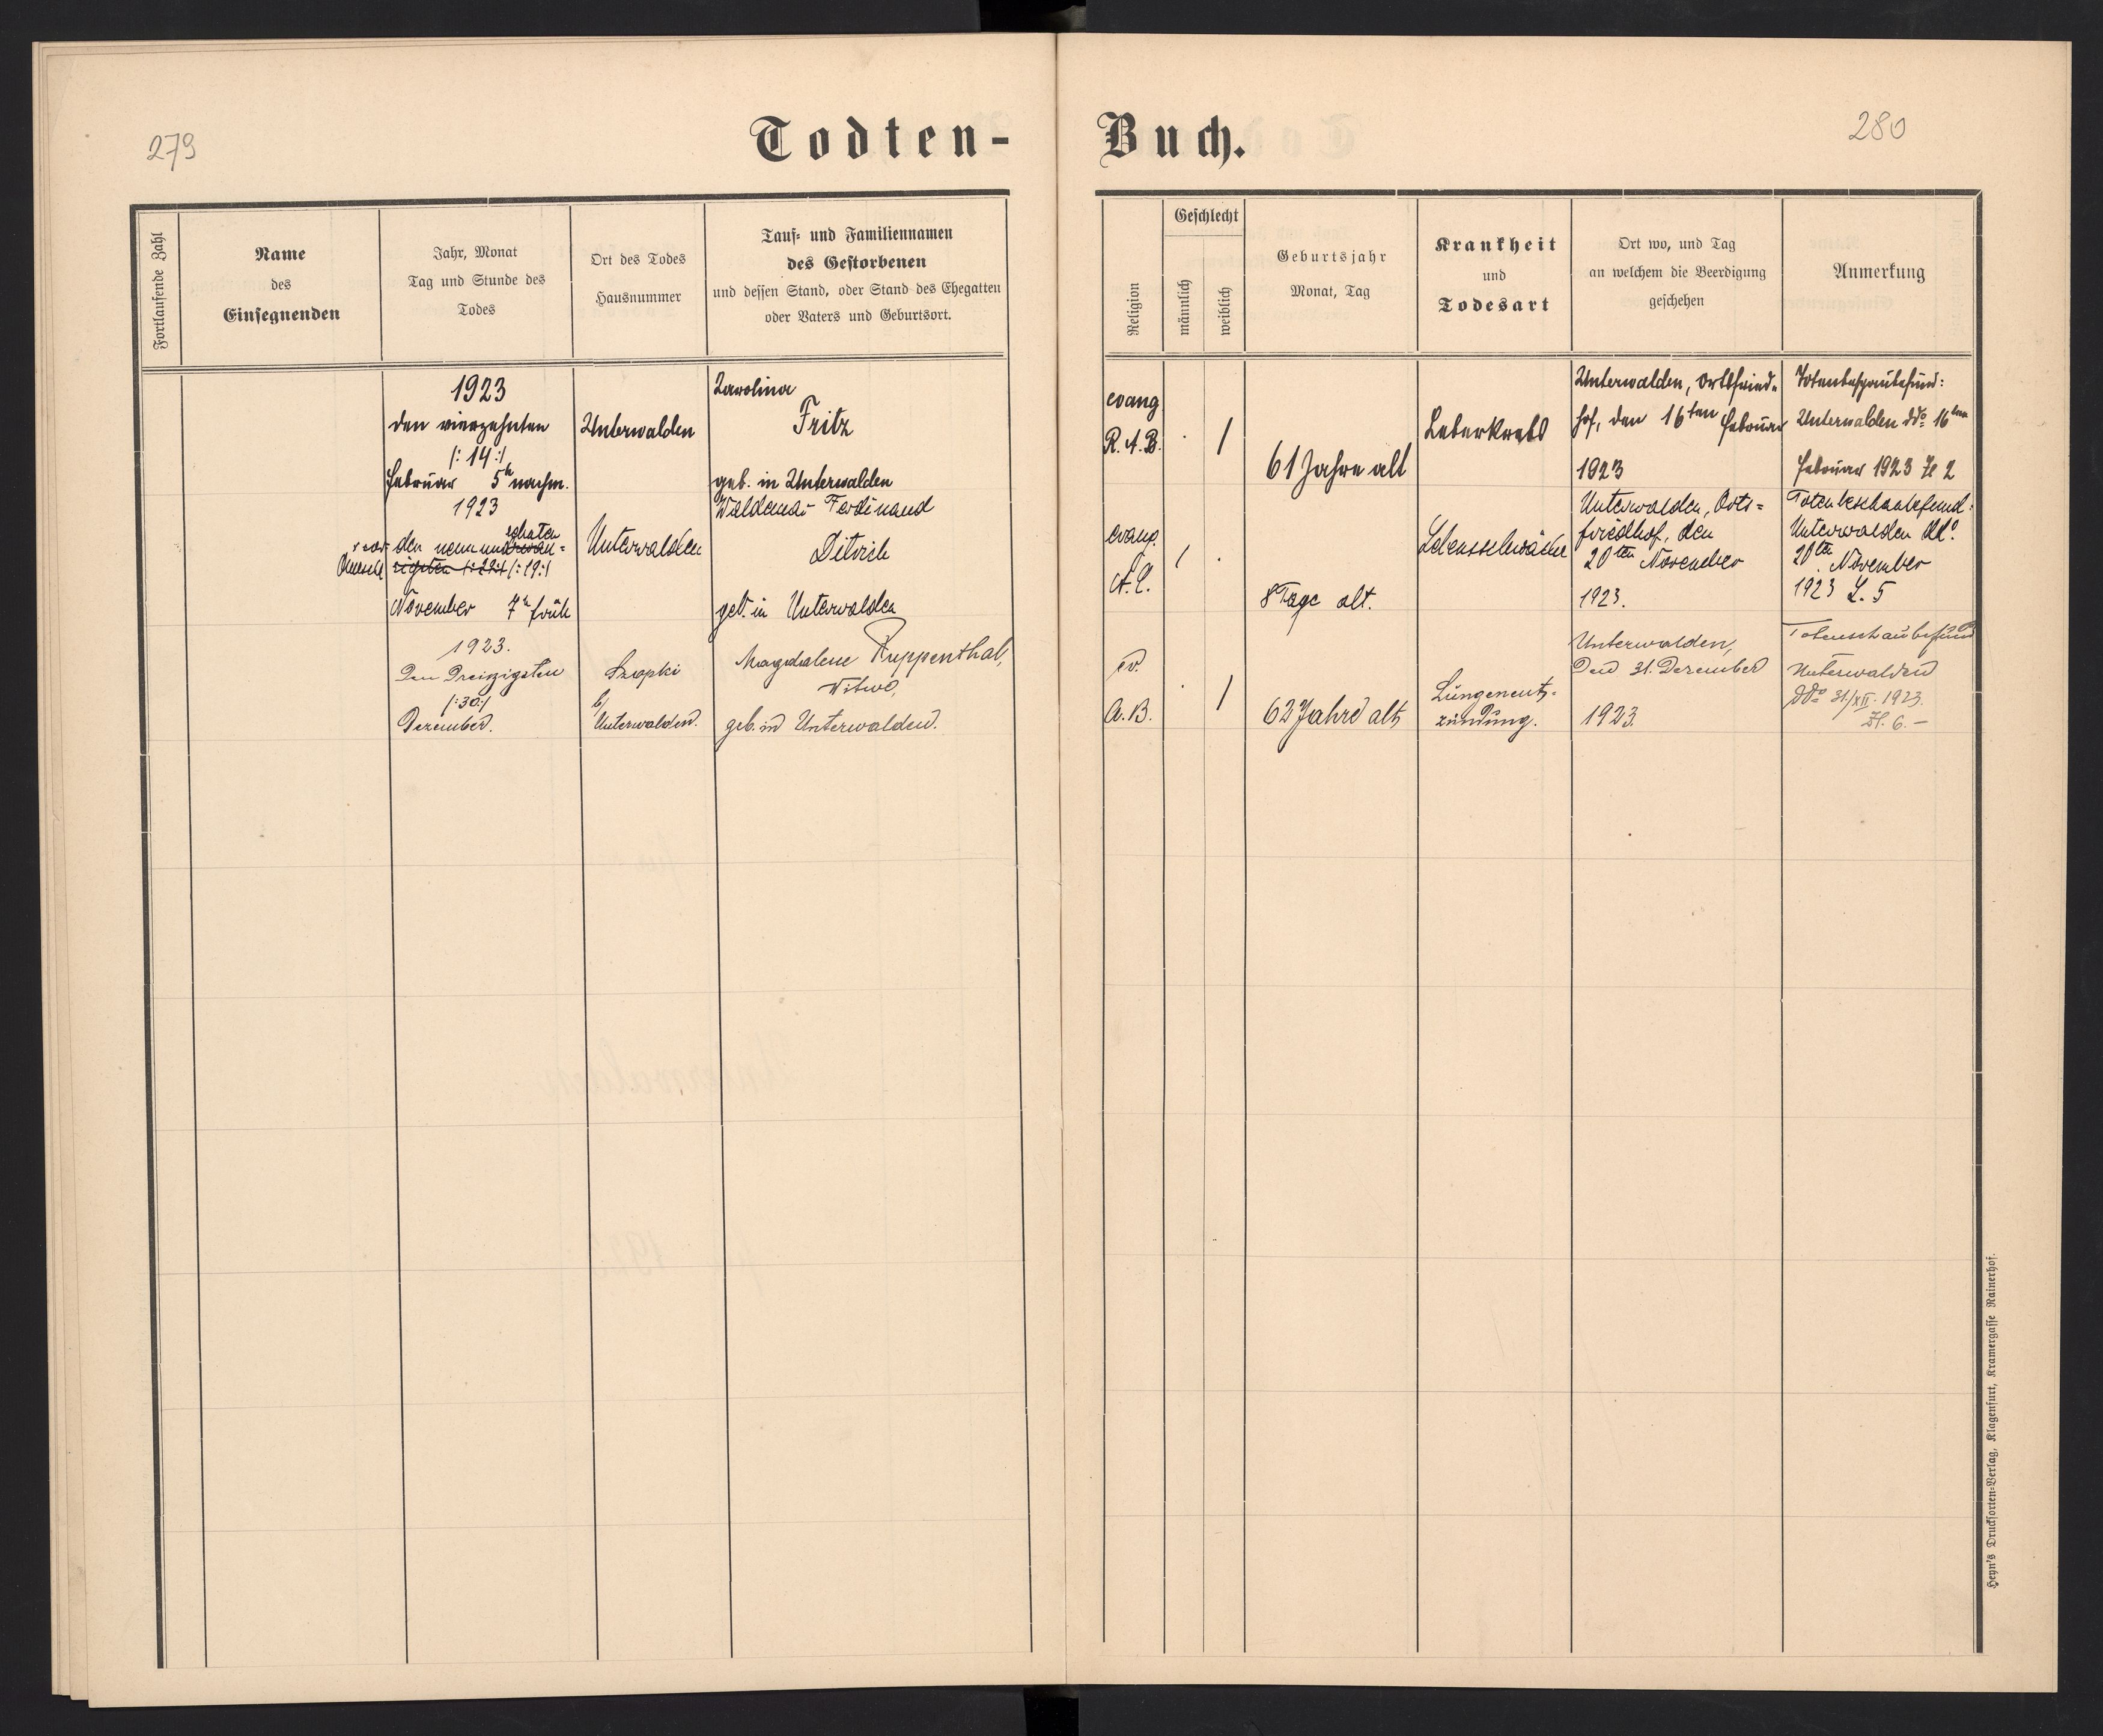 279
280
Todten-Buch.
Fortlaufende Zahl
Name
des
Einsegnenden
Jahr, Monat
Tag und Stunde des
Todes
Ort des Todes
Hausnummer
Tauf- und Familiennamen
des Gestorbenen
und dessen Stand, oder Stand des Ehegatten
oder Vaters und Geburtsort.
Religion
Geschlecht
männlich
weiblich
Geburtsjahr
Monat, Tag
Krankheit
und
Todesart
Ort wo, und Tag
an welchem die Beerdigung
geschehen
Anmerkung
1923
den vierzehnten
/: 14 :/
Februar 5h nachm.
Unterwalden
Karolina
Fritz
geb. in Unterwalden
evang
R. A. B.
. /
61 Jahre alt
Leberkrebs
Unterwalden, Ortsfried-
hof, den 16ten Februar
1923
Totenbeschaubefund:
Unterwalden ddo 16ten
Februar 1923 Z 2
1923
den neunzehnten
/: 19 :/
November 7h früh
Unterwalden
Waldemar Ferdinand
Ditrich
geb. in Unterwalden
evang.
/ .
8 Tage alt.
Lebensschwäche
Unterwalden, Orts-
friedhof, den
20ten November
1923.
Totenbeschaubefund:
Unterwalden ddo
20ten November
1923 Z. 5
1923.
Den Dreizigsten
/:30:/
Dezember.
Szopki
b/
Unterwalden.
Magdalene Ruppenthal,
Witwe,
geb. in Unterwalden.
ev.
A. B.
. /
62 Jahre alt
Lungenent-
zündung.
Unterwalden,
Den 31. Dezember
1923.
Totenschaubefund
Unterwalden
ddo 31./XII. 1923.
Zl. 6. –
Heyn's Drucksorten-Verlag, Klagenfurt, Kramergasse Rainerhof.